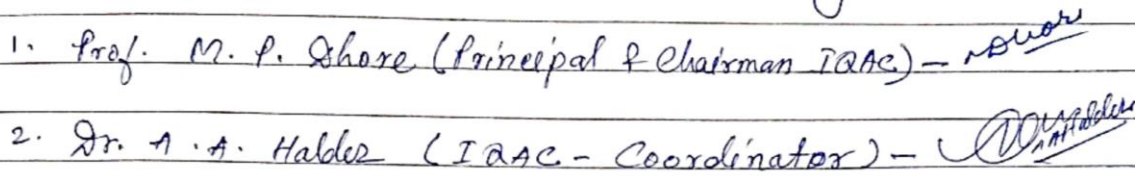 1. Prof. M. P. Dhore (Principal & Chairman IQAC) –
2. Dr. A. A. Halder (IQAC - Coordinator) –